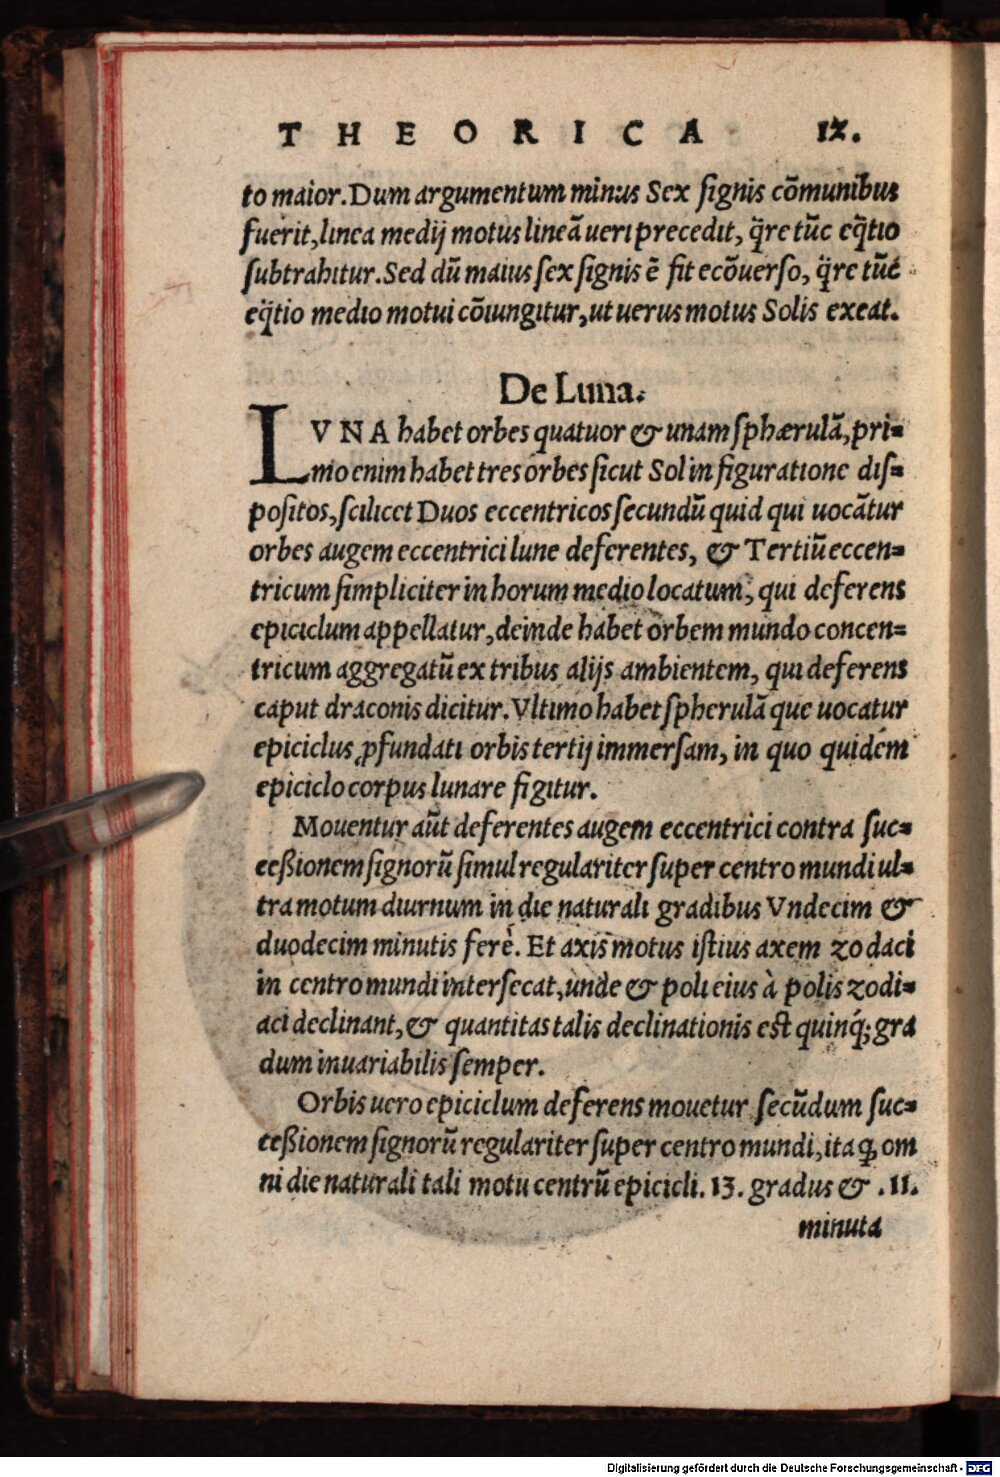 THEORICA IX.
to maior. Dum argumentum minus Sex signis cõmunibus
fuerit, linea medij motus lineã ueri precedit, q̃re tũc eq̃tio
subtrahitur. Sed dũ maius sex signis ẽ fit ecõuerso, q̃re tũc
eq̃tio medio motui cõiungitur, ut uerus motus Solis exeat.
De Luna.
LVNA habet orbes quatuor & unam sphærulã, pri=
mo enim habet tres orbes sicut Sol in figuratione dis=
positos, scilicet Duos eccentricos secundũ quid qui uocãtur
orbes augem eccentrici lune deferentes, & Tertiũ eccen=
tricum simpliciter in horum medio locatum, qui deferens
epiciclum appellatur, deinde habet orbem mundo concen=
tricum aggregatũ ex tribus alijs ambientem, qui deferens
caput draconis dicitur. Vltimo habet spherulã que uocatur
epiciclus ꝓfundati orbis tertij immersam, in quo quidem
epiciclo corpus lunare figitur.
Mouentur aũt deferentes augem eccentrici contra suc=
ceßionem signorũ simul regulariter super centro mundi ul=
tra motum diurnum in die naturali gradibus Vndecim &
duodecim minutis ferè. Et axis motus istius axem zodaci
in centro mundi intersecat, unde & poli eius à polis zodi=
aci declinant, & quantitas talis declinationis est quinq́; gra
dum inuariabilis semper.
Orbis uero epiciclum deferens mouetur secũdum suc=
ceßionem signorũ regulariter super centro mundi, ita ꝙ om
ni die naturali tali motu centrũ epicicli. 13. gradus & .11.
minuta
Digitalisierung gefördert durch die Deutsche Forschungsgemeinschaft - DFG